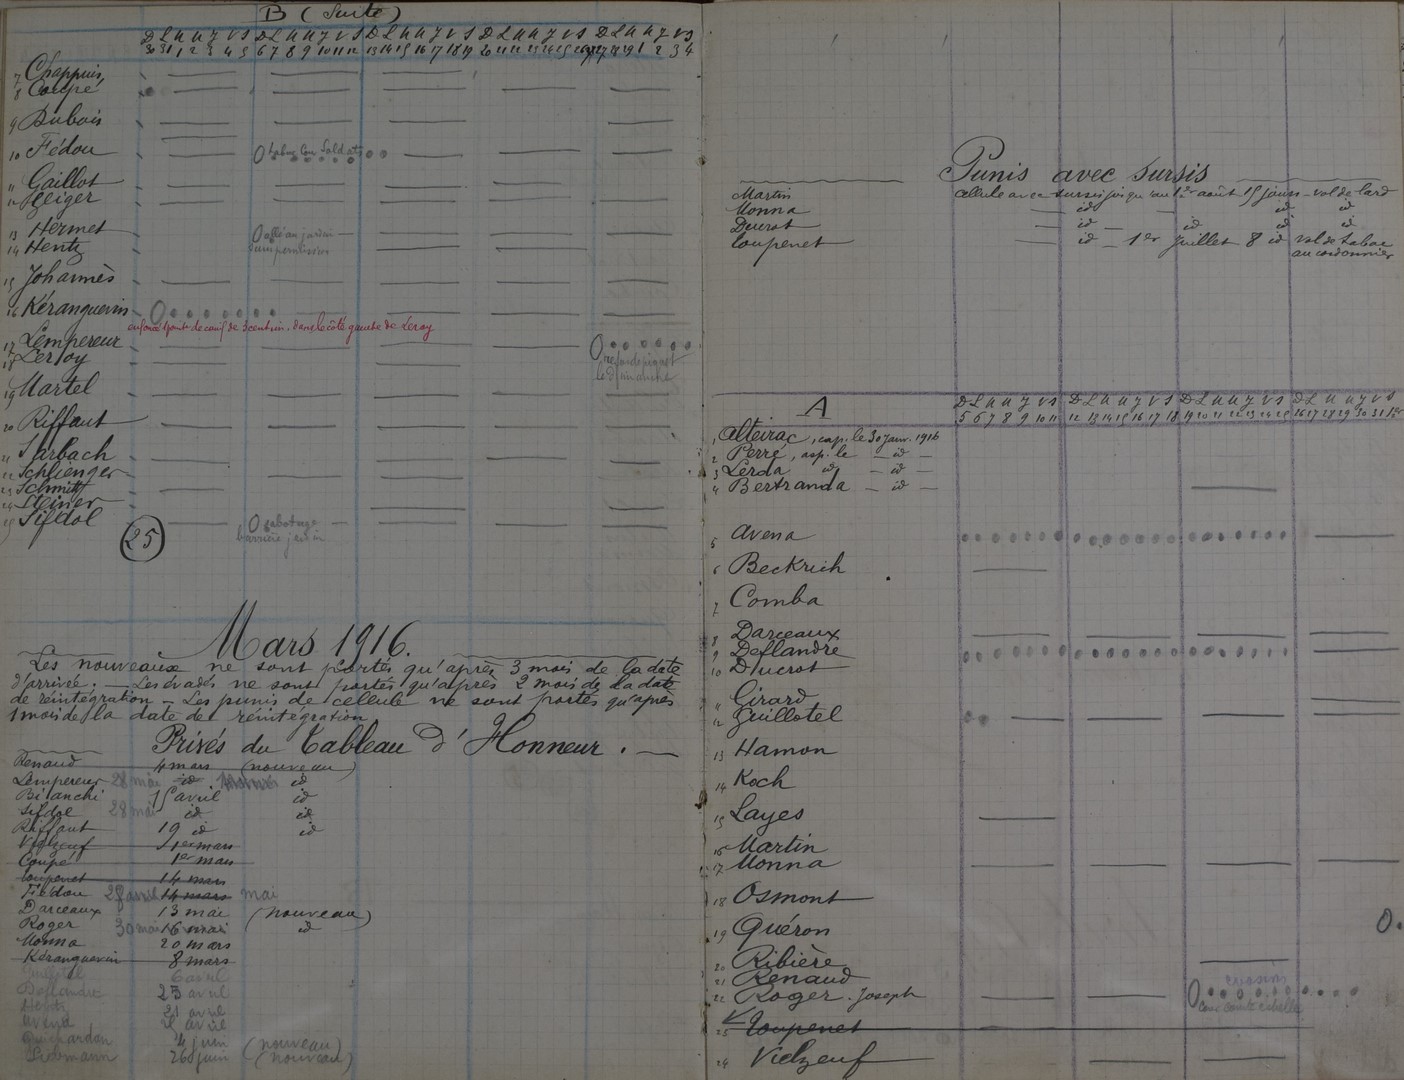 B (Suite)
D L M M J V S D L M M J V S D L M M J V S D L M M J V S D L M M J V S
30 31 1 2 3 4 5 6 7 8 9 10 11 12 13 14 15 16 17 18 19 20 21 22 23 24 25 26 27 28 29 1 2 3 4
7 Chappuis
8 Coupé
9 Dubois
10 Fédou
O tabac aux Soldats
11 Gaillot
12 Geiger
13 Hermet
O allé au jardin
sans permission
14 Hentz
15 Johannès
16 Kéranguevin O
enfoncé 1 pointe de canif de 3 centim. dans le côté gauche de Leroy
17 Lempereur
18 Leroy
O
le dimanche
19 Martel
20 Riffaut
21 Sarbach
22 Schlienger
23 Schmitt
24 Steiner
25 Sifdol
O sabotage
barrière jardin
25
Mars 1916.
Les nouveaux ne sont portés qu'après 3 mois de la date
d'arrivée. — Les évadés ne sont portés qu'après 2 mois de la date
de réintégration — Les punis de cellule ne sont portés qu'après
1 mois de la date de réintégration
Privés du Tableau d'Honneur. —
Renaud 4 mars (nouveau)
Lempereur 28 mai id id
Bianchi 15 avril id
Sifdol 28 mai id id
Riffaut 19 id id
Vielzeuf 1er mars
Coupé 1er mars
Loupenet 14 mars
Fédou 28 avril 14 mars mai
Darceaux 13 mai (nouveau)
Roger 30 mai 16 mai id
Monna 20 mars
Kéranguevin 8 mars
Guillotel 6 avril
Deflandre 23 avril
Hentz 21 avril
Avena avril
4 juin (nouveau)
26 juin (nouveau)
Punis avec sursis
Martin cellule avec sursis jusqu'au 1er août 15 jours — vol de lard
Monna — id — id id
Ducrot — id — id id id
Loupenet — id — 1er Juillet 8 id vol de tabac
au cordonnier
A
D L M M J V S D L M M J V S D L M M J V S D L M M J V S
5 6 7 8 9 10 11 12 13 14 15 16 17 18 19 20 21 22 23 24 25 26 27 28 29 30 31 1er
1 Alteirac, cap. le 30 janv. 1916
2 Perré, asp. le — id —
3 Lerda id — id —
4 Bertranda — id —
5 Avena
6 Beckrich
7 Comba
8 Darceaux
9 Deflandre
10 Ducrot
11 Girard
12 Guillotel
13 Hamon
14 Koch
15 Layes
16 Martin
17 Monna
18 Osmont
19 Quéron
0.
20 Ribière
21 Renaud
22 Roger. Joseph
O évasion
23 Loupenet
24 Vielzeuf